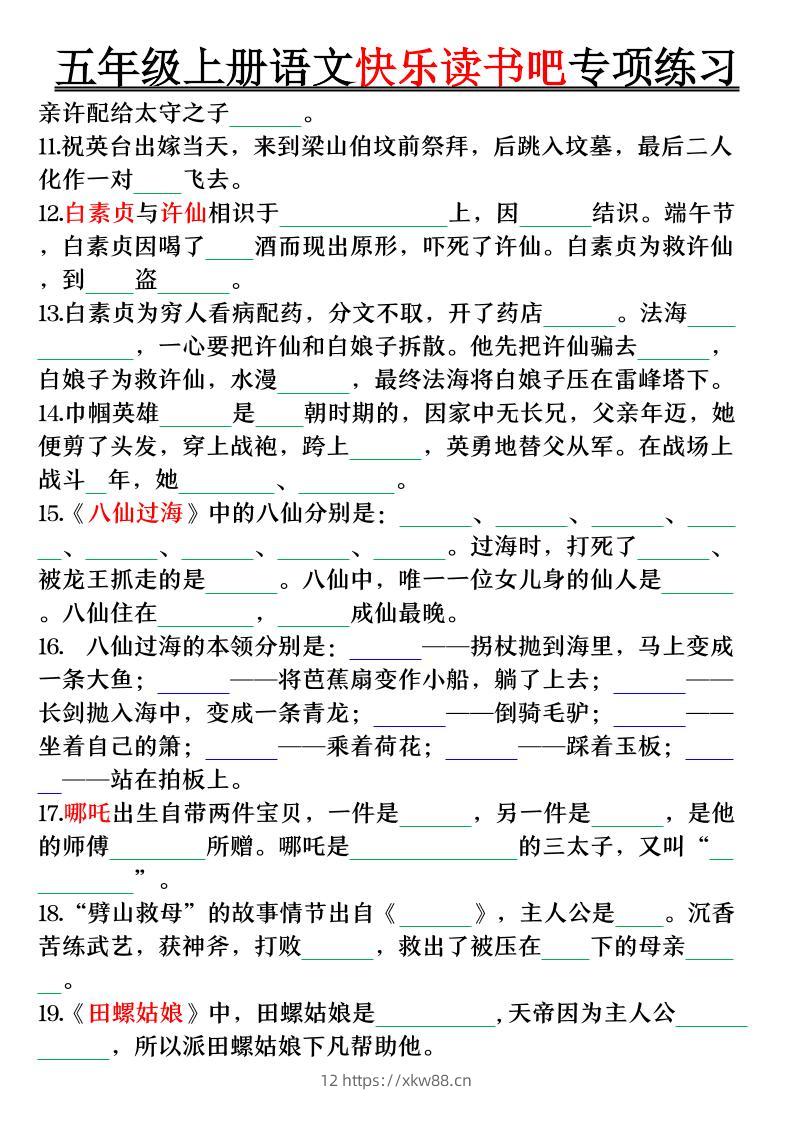 五年级上册语文快乐读书吧专项练习
亲许配给太守之子______。
11.祝英台出嫁当天，来到梁山伯坟前祭拜，后跳入坟墓，最后二人
化作一对____飞去。
12.白素贞与许仙相识于______________上，因______结识。端午节
，白素贞因喝了____酒而现出原形，吓死了许仙。白素贞为救许仙
，到____盗______。
13.白素贞为穷人看病配药，分文不取，开了药店______。法海____
________，一心要把许仙和白娘子拆散。他先把许仙骗去______，
白娘子为救许仙，水漫______，最终法海将白娘子压在雷峰塔下。
14.巾帼英雄______是____朝时期的，因家中无长兄，父亲年迈，她
便剪了头发，穿上战袍，跨上______，英勇地替父从军。在战场上
战斗__年，她________、________。
15.《八仙过海》中的八仙分别是：______、______、______、____
__、______、______、______、______。过海时，打死了______、
被龙王抓走的是______。八仙中，唯一一位女儿身的仙人是______
。八仙住在________，______成仙最晚。
16. 八仙过海的本领分别是：______——拐杖抛到海里，马上变成
一条大鱼；______——将芭蕉扇变作小船，躺了上去；______——
长剑抛入海中，变成一条青龙；______——倒骑毛驴；______——
坐着自己的箫；______——乘着荷花；______——踩着玉板；____
__——站在拍板上。
17.哪吒出生自带两件宝贝，一件是______，另一件是______，是他
的师傅________所赠。哪吒是______________的三太子，又叫“__
________”。
18.“劈山救母”的故事情节出自《______》，主人公是____。沉香
苦练武艺，获神斧，打败______，救出了被压在____下的母亲____
__。
19.《田螺姑娘》中，田螺姑娘是__________,天帝因为主人公______
______，所以派田螺姑娘下凡帮助他。
12 https://xkw88.cn